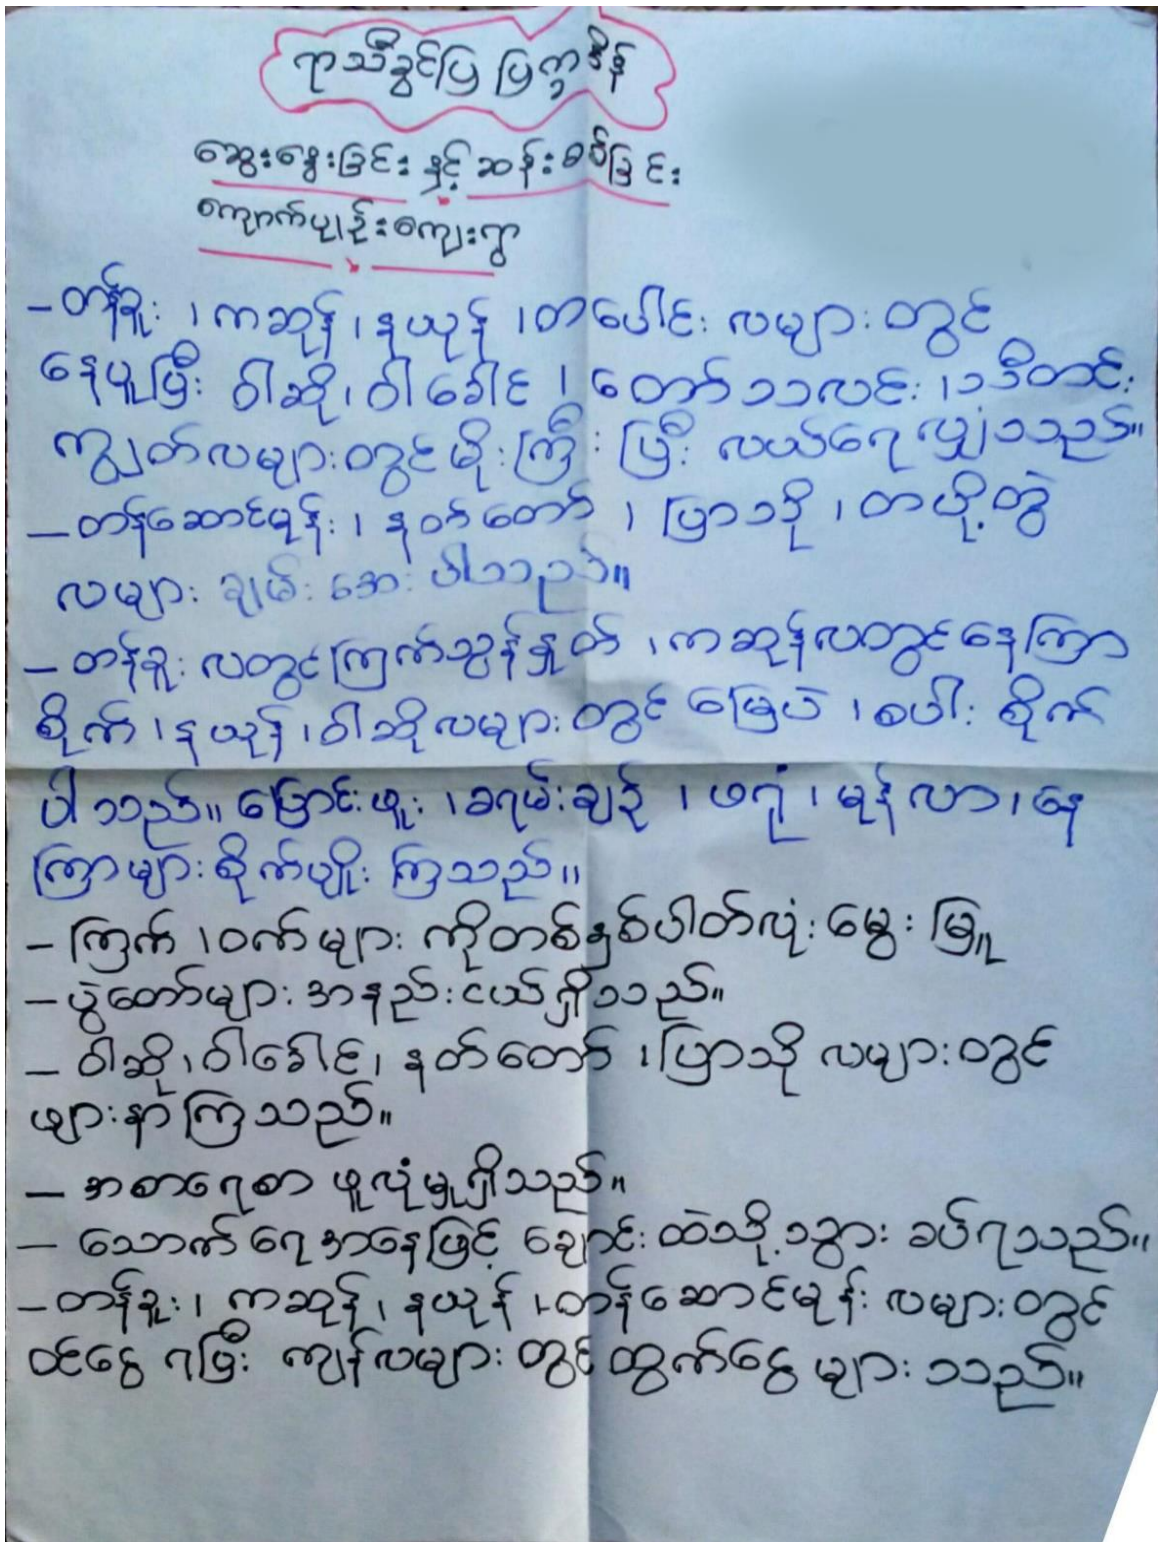 ရာသီခွင်ပြ ပြက္ခဒိန်
ဆွေးနွေးခြင်း နှင့် ဆန်းစစ်ခြင်း
ကျောက်ပျဉ်းကျေးရွာ
- တန်ခူး ၊ ကဆုန် ၊ နယုန် ၊ တပေါင်း လများ တွင်
နေပူပြီး ဝါဆို ၊ ဝါခေါင် ၊ တော်သလင်း ၊ သီတင်း
ကျွတ်လများတွင် မိုးကြီး ပြီး လယ်ရေ လျှံသည်။
- တန်ဆောင်မုန်း ၊ နတ်တော် ၊ ပြာသို ၊ တပို့တွဲ
လများ ချမ်းအေးပါသည်။
- တန်ခူး လတွင် ကြက်သွန်နှုတ် ၊ ကဆုန်လတွင် နေကြာ
စိုက် ၊ နယုန် ၊ ဝါဆိုလများ တွင် မြေပဲ ၊ စပါး စိုက်
ပါသည်။ ပြောင်းဖူး ၊ ခရမ်းချဉ် ၊ ဖရုံ ၊ မုန်လာ ၊ နေ
ကြာများ စိုက်ပျိုး ကြသည်။
- ကြက် ၊ ဝက်များ ကိုတစ်နှစ်ပါတ်လုံး မွေး မြူ
- ပွဲတော်များ အနည်းငယ်ရှိသည်။
- ဝါဆို ၊ ဝါခေါင် ၊ နတ်တော် ၊ ပြာသို လများတွင်
ဖျားနာကြသည်။
- အစာရေစာ ဖူလုံမှုရှိသည်။
- သောက်ရေအနေဖြင့် ချောင်း ထဲသို့ သွား ခပ်ရသည်။
- တန်ခူး ၊ ကဆုန် ၊ နယုန် ၊ တန်ဆောင်မုန်း လများတွင်
ဝင်ငွေ ရပြီး ကျန်လများ တွင် ထွက်ငွေ များ သည်။